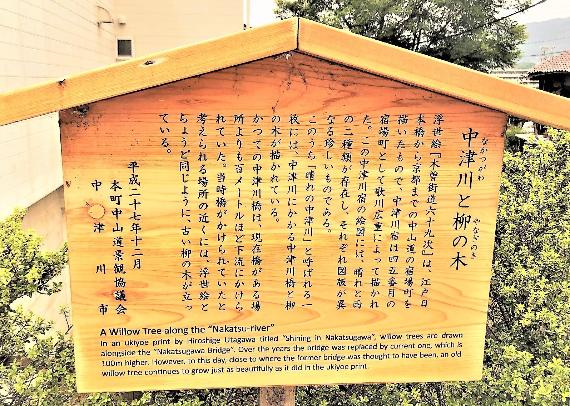 中津川と柳の木
なかつがわ
やなぎのき
浮世絵「木曽街道六十九次」は、江戸日
本橋から京都までの中山道の宿場町を
描いたもので、中津川宿は四五番目の
宿場町として歌川広重によって描かれ
た。この中津川宿の絵図には、晴れと雨
の二種類が存在し、それぞれ図版が異
なる珍しいものである。
このうち「晴れの中津川」と呼ばれる一
枚には、中津川にかかる中津川橋と柳
の木が描かれている。
かつての中津川橋は、現在橋がある場
所よりも百メートルほど下流にかけら
れていた。当時橋がかけられていたと
考えられる場所の近くには、浮世絵と
ちょうど同じように、古い柳の木が立っ
ている。
平成二十七年十二月
本町中山道景観協議会
中津川市
A Willow Tree along the "Nakatsu-river"
In an ukiyoe print by Hiroshige Utagawa titled "Shining in Nakatsugawa", willow trees are drawn
alongside the "Nakatsugawa Bridge". Over the years the bridge was replaced by current one, which is
100m higher. However, to this day, close to where the former bridge was thought to have been, an old
willow tree continues to grow just as beautifully as it did in the ukiyoe print.